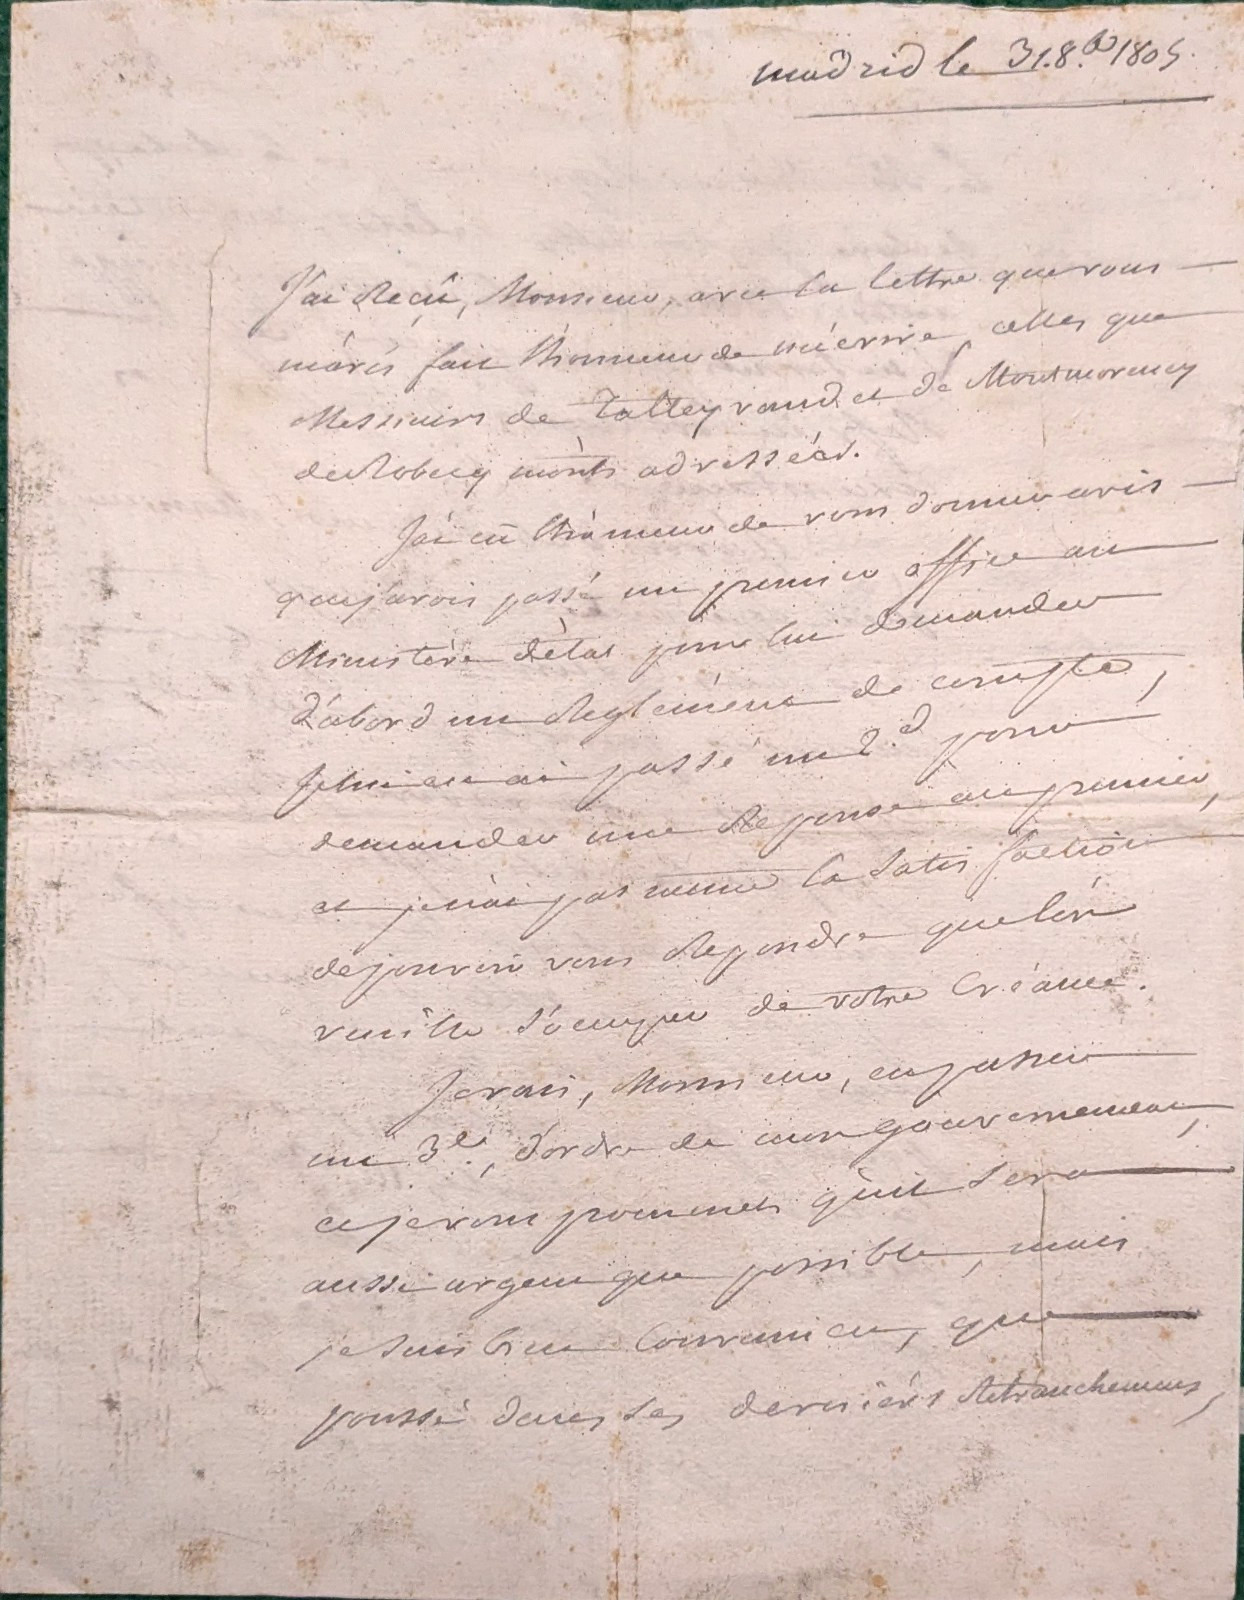 Madrid le 31. 8.bre 1805.
J'ai Reçû, Monsieur, avec la lettre que vous
m'avés fait l'honneur de m'écrire, celles que
Messieurs de Talleyrand et de Montmorency
de Robecq m'ont adressées.
J'ai eû l'honneur de vous donner avis
que j'avois passé un premier office au
Ministère d'état pour lui demander
d'abord un Reglement de compte,
je lui en ai passé un 2.d pour
demander une Reponse au premier,
et je n'ai pas même la satisfaction
de pouvoir vous Repondre que l'on
veuille s'occuper de votre Créance.
Je vais, Monsieur, en passer
un 3.e, d'ordre de mon gouvernement,
et je vous promets qu'il sera
aussi urgent que possible, mais
je suis bien convaincu, que
poussé dans ses derniers Retranchemens,